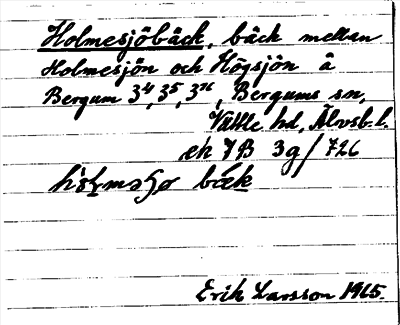 Holmesjöbäck, bäck mellan
Holmesjön och Högsjön å
Bergum 3⁴, 3⁵, 3¹⁶, Bergums sn,
Vättle hd, Älvsb. l.
ek 7B 3g/726
bäck
Erik Larsson 1965.